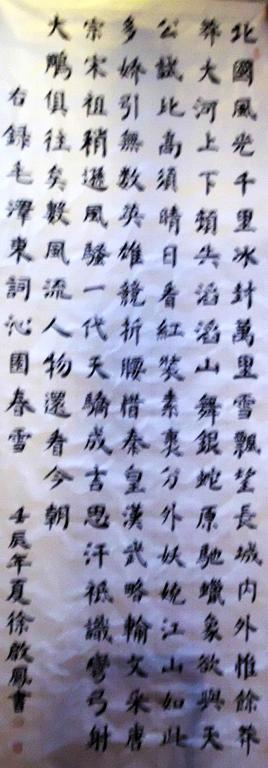 北國風光千里冰封萬里雪飄望長城内外惟餘莽
莽大河上下頓失滔滔山舞銀蛇原馳蠟象欲與天
公試比高須晴日看紅裝素裹分外妖娆江山如此
多嬌引無數英雄競折腰惜秦皇漢武略輸文采唐
宗宋祖稍遜風騷一代天驕成吉思汗祇識彎弓射
大鵬俱往矣數風流人物還看今朝
右錄毛澤東詞沁園春雪 壬辰年夏徐啟鳳書